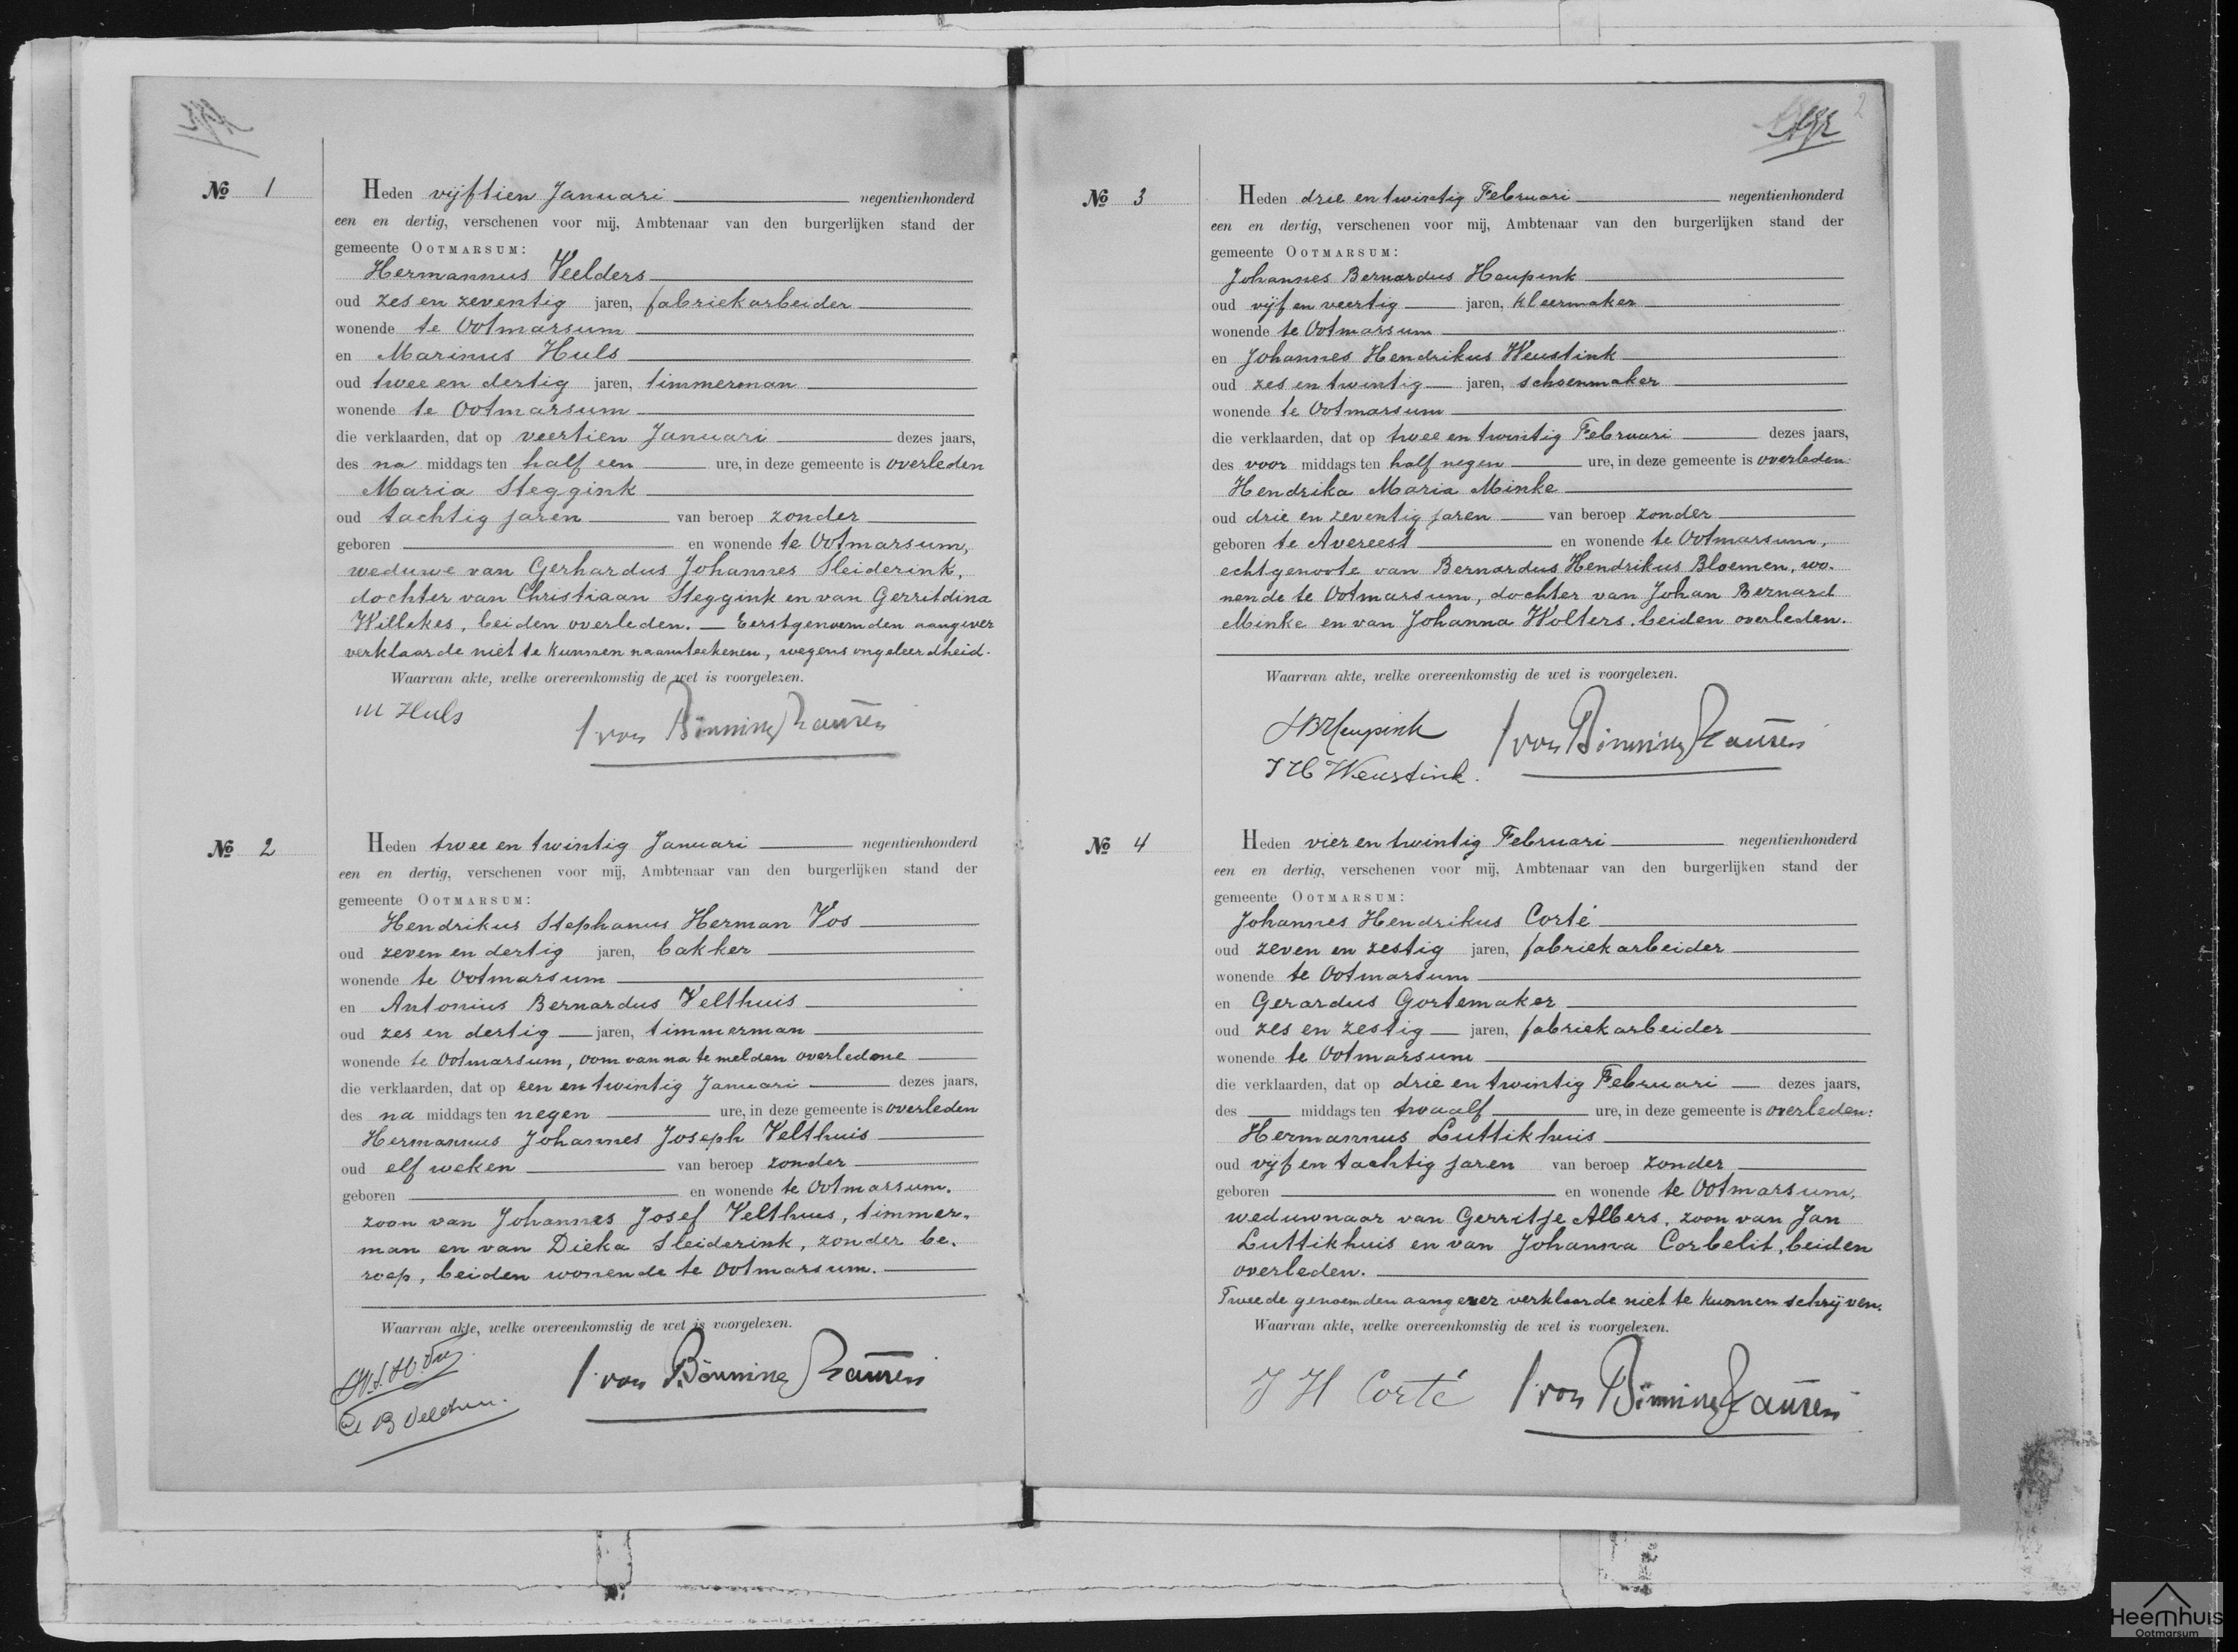 No 1
Heden vijftien Januari negentienhonderd
een en dertig, verschenen voor mij, Ambtenaar van den burgerlijken stand der
gemeente OOTMARSUM:
Hermannus Veelders
oud zes en zeventig jaren, fabriekarbeider
wonende te Ootmarsum
en Marinus Huls
oud twee en dertig jaren, timmerman
wonende te Ootmarsum
die verklaarden, dat op veertien Januari dezes jaars,
des na middags ten half een ure, in deze gemeente is overleden
Maria Steggink
oud tachtig jaren van beroep zonder
geboren en wonende te Ootmarsum,
weduwe van Gerhardus Johannes Sleiderink,
dochter van Christiaan Steggink en van Gerritdina
Willekes, beiden overleden. — Eerstgenoemden aangever
verklaarde niet te kunnen naamteekenen, wegens ongeleerdheid.
Waarvan akte, welke overeenkomstig de wet is voorgelezen.
M Huls
von Bönninghausen
No 2
Heden twee en twintig Januari negentienhonderd
een en dertig, verschenen voor mij, Ambtenaar van den burgerlijken stand der
gemeente OOTMARSUM:
Hendrikus Stephanus Herman Vos
oud zeven en dertig jaren, bakker
wonende te Ootmarsum
en Antonius Bernardus Velthuis
oud zes en dertig jaren, timmerman
wonende te Ootmarsum, oom van na te melden overledene
die verklaarden, dat op een en twintig Januari dezes jaars,
des na middags ten negen ure, in deze gemeente is overleden
Hermannus Johannes Joseph Velthuis
oud elf weken van beroep zonder
geboren en wonende te Ootmarsum.
zoon van Johannes Josef Velthuis, timmer-
man en van Dieka Sleiderink, zonder be-
roep, beiden wonende te Ootmarsum.
Waarvan akte, welke overeenkomstig de wet is voorgelezen.
von Bönninghausen
No 3
Heden drie en twintig Februari negentienhonderd
een en dertig, verschenen voor mij, Ambtenaar van den burgerlijken stand der
gemeente OOTMARSUM:
Johannes Bernardus Heupink
oud vijf en veertig jaren, kleermaker
wonende te Ootmarsum
en Johannes Hendrikus Weustink
oud zes en twintig jaren, schoenmaker
wonende te Ootmarsum
die verklaarden, dat op twee en twintig Februari dezes jaars,
des voor middags ten half negen ure, in deze gemeente is overleden
Hendrika Maria Minke
oud drie en zeventig jaren van beroep zonder
geboren te Avereest en wonende te Ootmarsum,
echtgenoote van Bernardus Hendrikus Bloemen, wo-
nende te Ootmarsum, dochter van Johan Bernard
Minke en van Johanna Wolters. beiden overleden.
Waarvan akte, welke overeenkomstig de wet is voorgelezen.
JBHeupink
von Bönninghausen
J H Weustink.
No 4
Heden vier en twintig Februari negentienhonderd
een en dertig, verschenen voor mij, Ambtenaar van den burgerlijken stand der
gemeente OOTMARSUM:
Johannes Hendrikus Corté
oud zeven en zestig jaren, fabriekarbeider
wonende te Ootmarsum
en Gerardus Gortemaker
oud zes en zestig jaren, fabriekarbeider
wonende te Ootmarsum
die verklaarden, dat op drie en twintig Februari dezes jaars,
des — middags ten twaalf ure, in deze gemeente is overleden:
Hermannus Luttikhuis
oud vijf en tachtig jaren van beroep zonder
geboren en wonende te Ootmarsum,
weduwnaar van Gerritje Albers, zoon van Jan
Luttikhuis en van Johanna Corbelit, beiden
overleden.
Tweede genoemden aangever verklaarde niet te kunnen schrijven.
Waarvan akte, welke overeenkomstig de wet is voorgelezen.
J H Corté
von Bönninghausen
Heemhuis
Ootmarsum